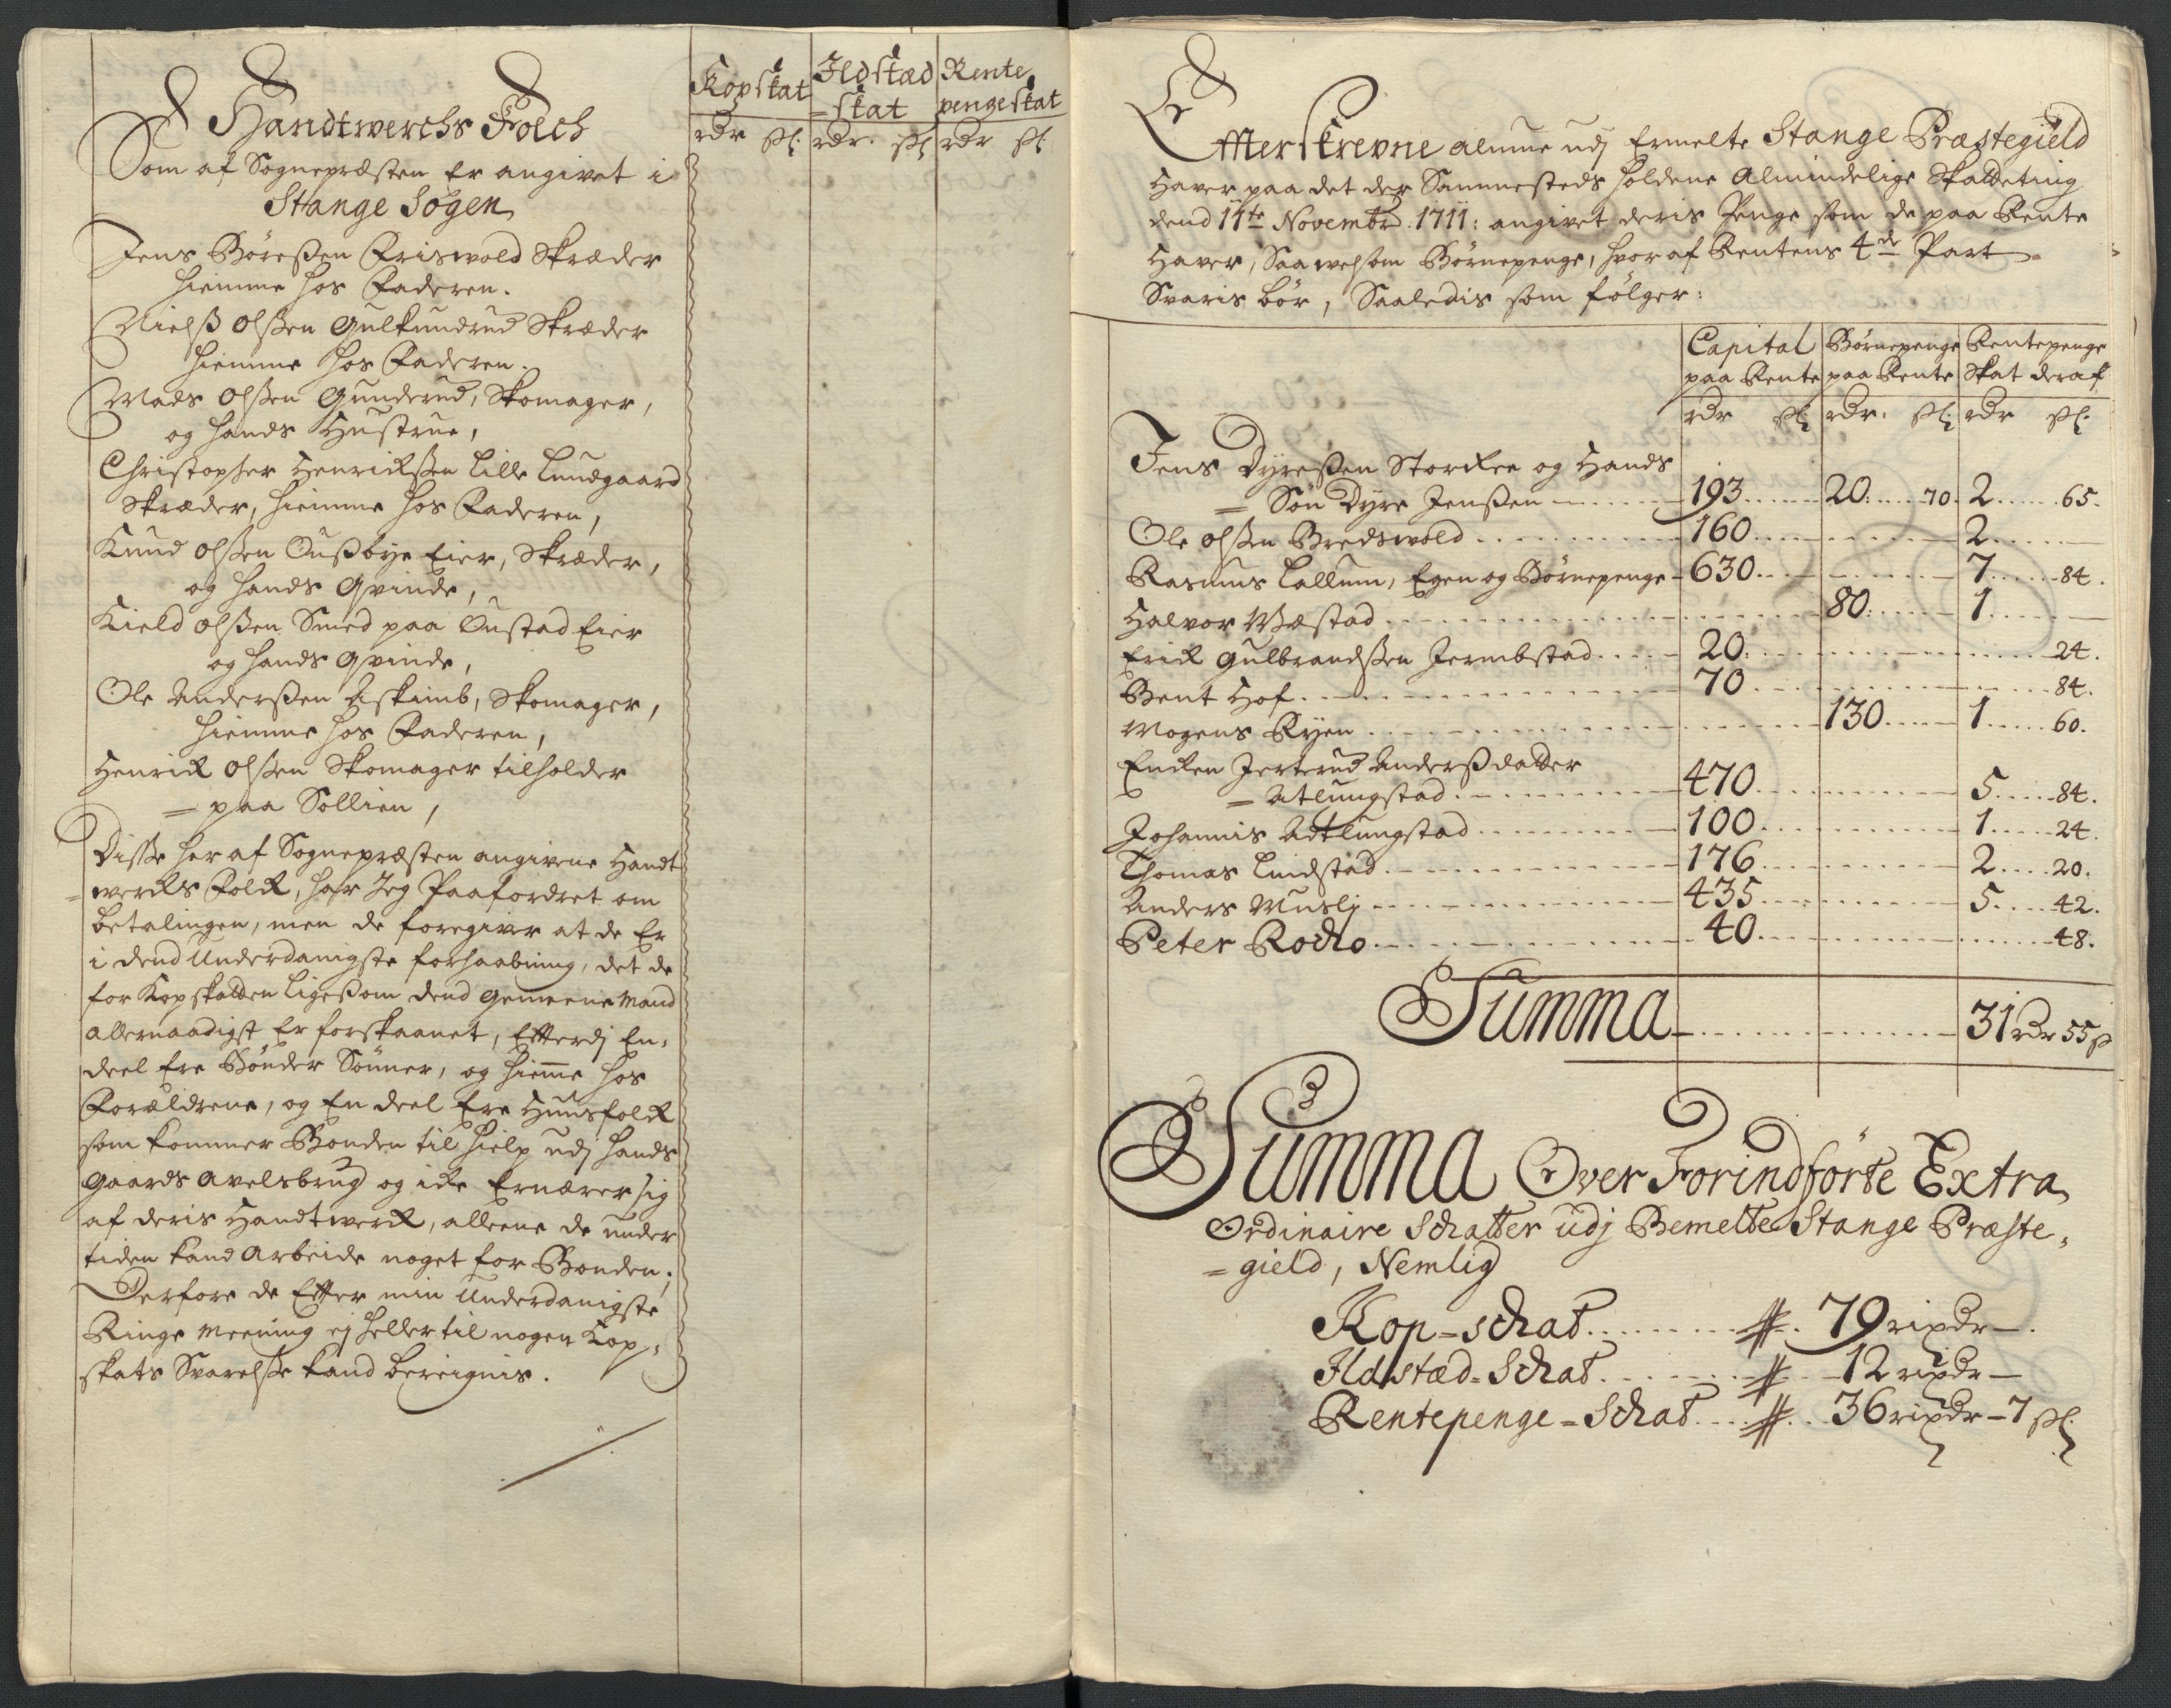 Handtwerchs Folch
Som af Sognepræsten Er angivet i
Stange Sogen
Jens Böreßen Friswold Skræder
hiemme hos Faderen.
Nielß Olßen Gulkundrud Skræder
hiemme hos Faderen.
Mads Olßen Gunderud, Skomager,
og hands Hustrue,
Christopher Henrichßen Lille Lundgaard
Skræder, hiemme hos Faderen,
Knud Olßen Oußbye Eier, Skræder,
og hands Qvinde,
Kield Olßen Smed paa Oustad Eier
og hands Qvinde,
Ole Anderßen Askimb, Skomager,
hiemme hos Faderen,
Henrich Olßen Skomager tilholder
= paa Sollien,
Disse her af Sognepræsten angivene Handt
= werchs Folch, har Jeg Paafordret om
betalingen, men de foregiver at de Er
i dend Underdanigste forhaabning, det de
for Kopskatten ligesom dend Gemeene Mand
allernaadigst Er forskaanet, Efterdj En,
deel Ere Bönder Sönner, og hieme hos
Forældrene, og En deel Ere Huusfolch
som kommer Bonden til hielp udj hands
Gaards Avelsbrug og icke Ernærer sig
af deris Handtwerch, alleene de under
tiden kand Arbeide noget for Bonden;
Derfore de Efter min Underdanigste
Ringe Meening ej heller til nogen Kop,
skats Svarelße kand bereignis.
Kopskat Ildstæd =skat Rente pengeskat
rdr ß: rdr. ß: rdr ß:
Efterskrevne almue udj Ermelte Stange Præstegield
Haver paa det der Sammesteds holdene Almindelige Skatteting
dend 11te Novembr 1711: angivet deris Penge som de paa Rente
Haver, Saawelsom Börnepenge, hvor af Rentens 4de Part
Svaris bör, Saaledis som fölger:
Capital paa Rente Börnepenge paa Rente Rentepenge Skat deraf
rdr ß: rdr. ß: rdr ß:
Jens Dyreßen Storchen og Hands
= Sön Dyre Jenßen 193 20 70. 2 65.
Ole Olßen Bredswold 160 2
Rasmus Lallum, Egen og Börnepenge 630 7 84.
Halvor Wæstad 80 1
Erich Gulbrandßen Jermbstad 20 24.
Bent Hof 70 84.
Mogens Ryen 130 1 60.
Encken Jerterud Anderßdatter
= Atlungstad 470 5 84.
Johannis Adtlungstad 100 1 24.
Thomas Lindstad 176 2 20.
Anders Muslj 435 5 42.
Peter Rocho 40 48.
Summa 31 rdr 55 ß
Summa Over Forindförte Extra
Ordinaire Schatter udj Bemelte Stange Præste,
= gield, Nemlig
Kop=schat 79 rixdr —.
Ildstæd=Schat 12 rixdr —
Rentepenge=Schat 36 rixdr — 7 ß: